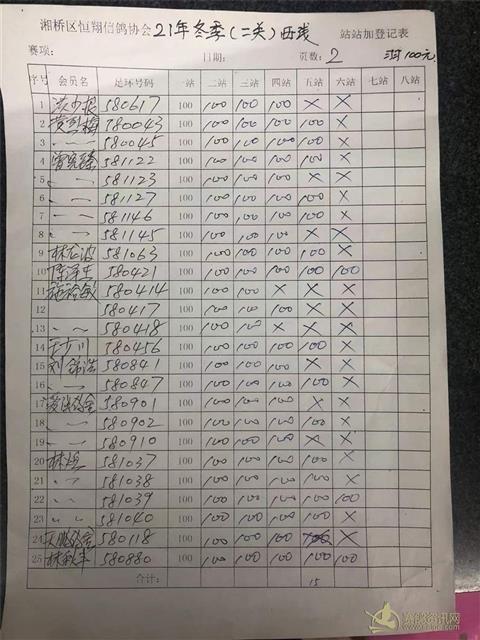 湘桥区恒翔信鸽协会 21年冬季(二关)西线 站站加登记表
赛项: 日期: 页数: 2 100元
序号 会员名 足环号码 一站 二站 三站 四站 五站 六站 七站 八站
1 580617 100 100 100 100 × ×
2 780043 100 100 100 100 100 ×
3 〃 580045 100 100 100 100 100 ×
4 581122 100 100 100 100 100 ×
5 〃 581123 100 100 100 100 × ×
6 〃 581127 100 100 100 100 100 ×
7 〃 581146 100 100 100 100 100 ×
8 〃 581145 100 100 100 100 × ×
9 581063 100 100 100 100 100 ×
10 580421 100 100 100 100 100 100
11 580414 100 100 100 × × ×
12 580417 100 100 100 100 × ×
13 〃 580418 100 100 100 × × ×
14 780456 100 100 100 100 100 ×
15 刘锦浩 580841 100 100 100 100 × ×
16 〃 580847 100 100 100 100 100 ×
17 580901 100 100 100 100 × ×
18 〃 580902 100 100 100 100 100 ×
19 〃 580910 100 100 100 100 × ×
20 581037 100 100 100 100 100 ×
21 〃 581038 100 100 100 100 100 ×
22 〃 581039 100 100 100 100 100 100
23 〃 581040 100 100 100 100 100 ×
24 580118 100 100 100 100 100 ×
25 580880 100 100 100 100 100 100
合计: 15